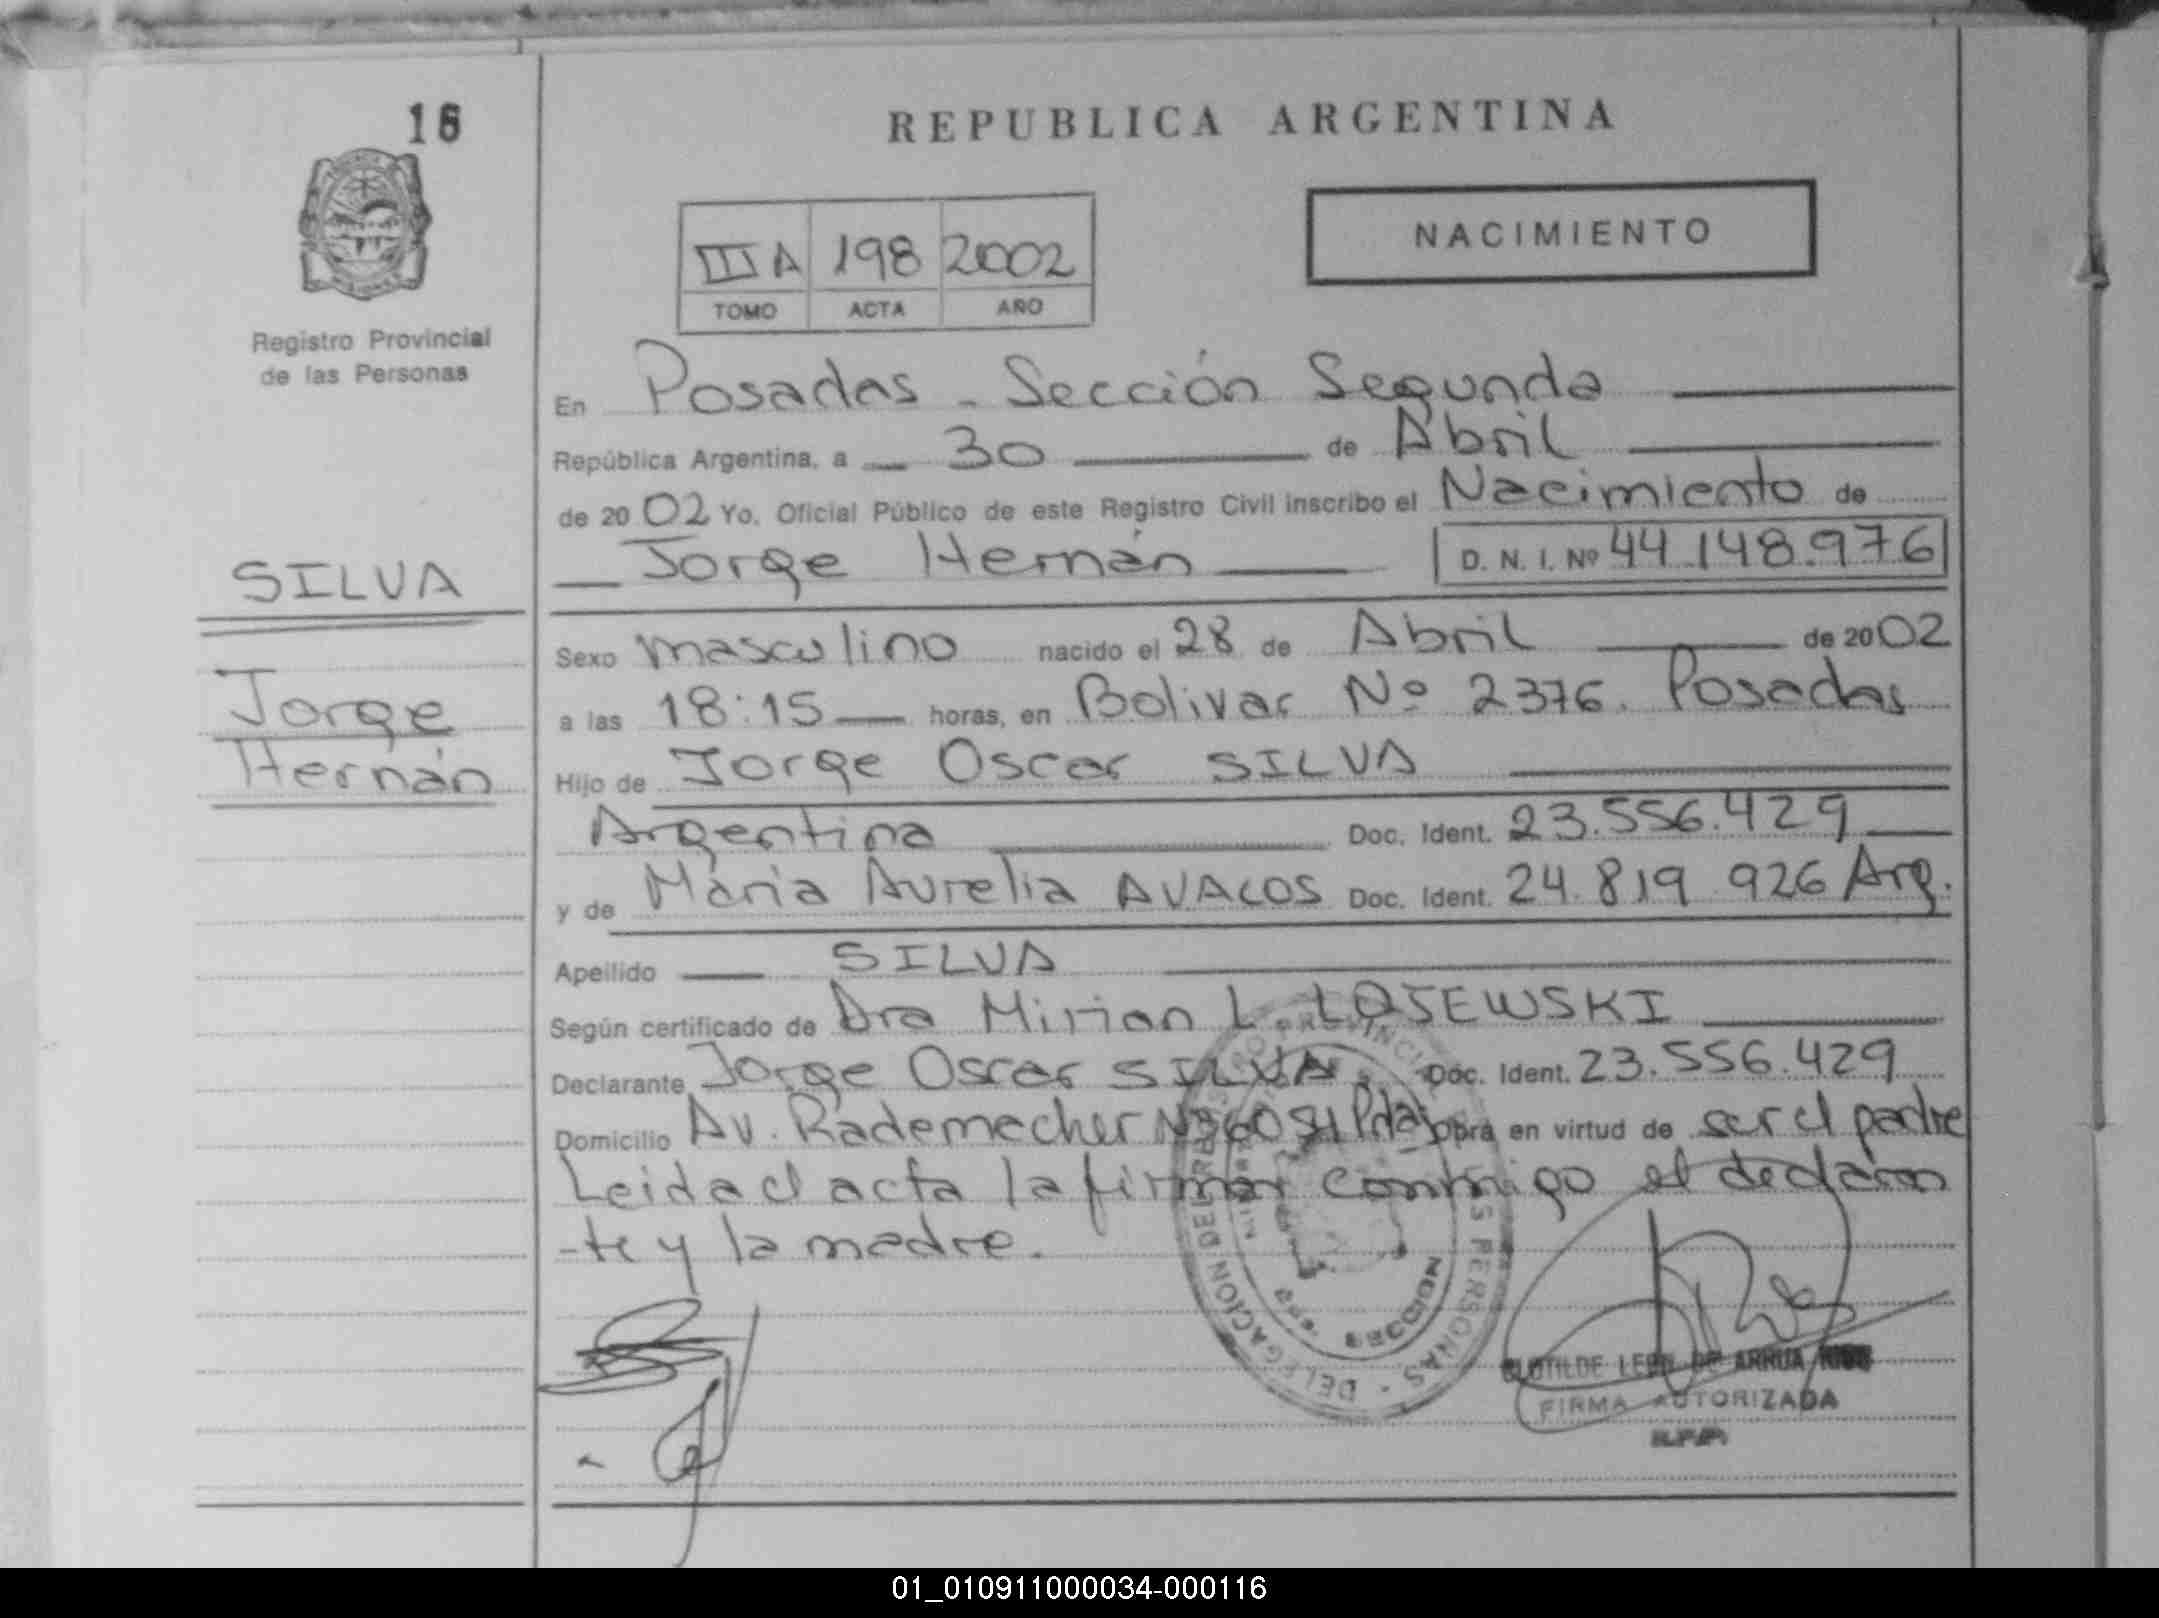 16
REPUBLICA ARGENTINA
Registro Provincial
de las Personas
III A 198 2002
TOMO ACTA AÑO
NACIMIENTO
En Posadas - Sección Segunda
República Argentina, a 30 de Abril
de 2002 Yo, Oficial Público de este Registro Civil inscribo el Nacimiento de
Jorge Hernán D. N. I. Nº 44.148.976
SILVA
Jorge
Hernán
Sexo masculino nacido el 28 de Abril de 2002
a las 18:15 horas, en Bolivar Nº 2376. Posadas
Hijo de Jorge Oscar SILVA
Argentina Doc. Ident. 23.556.429
y de Maria Aurelia AVALOS Doc. Ident. 24.819.926 Arg.
Apellido SILVA
Según certificado de Dra Mirian L. LOJEWSKI
Declarante Jorge Oscar SILVA Doc. Ident. 23.556.429
Domicilio Av. Rademecher Nº Pdas obra en virtud de ser el padre
Leida el acta la firman conmigo el declaran
-te y la madre.
DELEGACION DEL REGISTRO PROVINCIAL DE LAS PERSONAS
SECCION
CLOTILDE LEON DE ARRUA
FIRMA AUTORIZADA
01_010911000034-000116